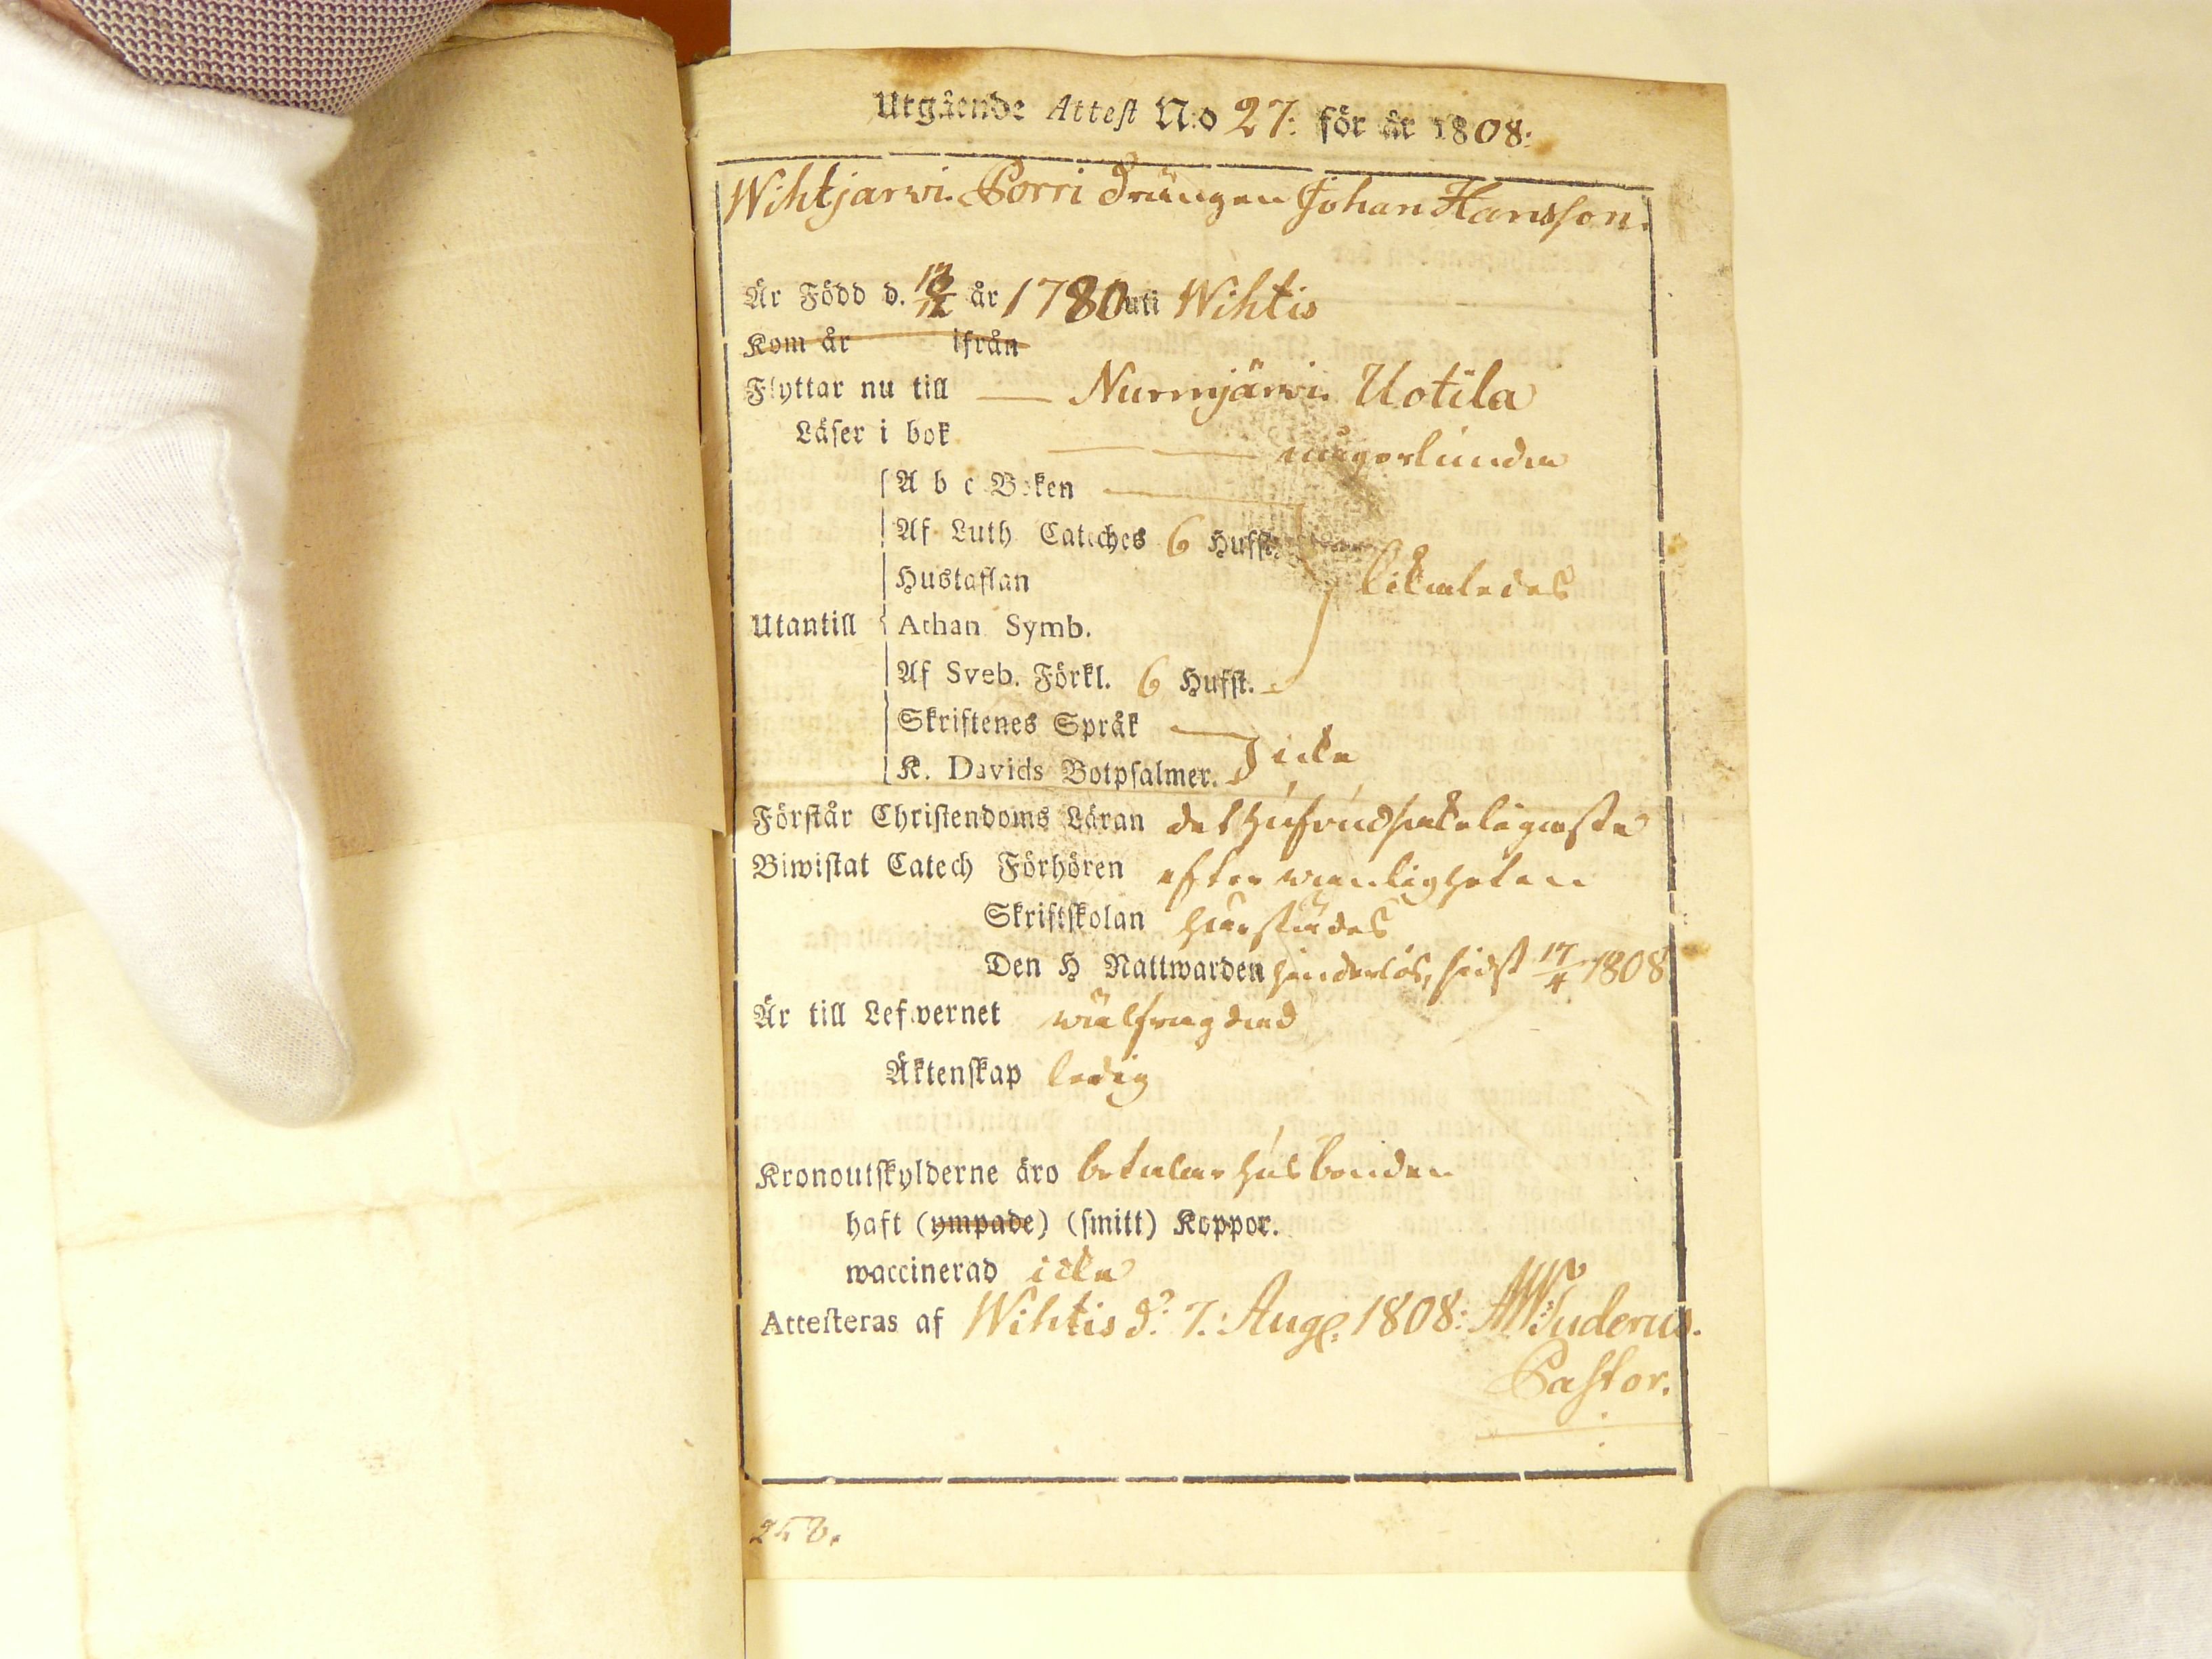 Utgående Attest N:o 27: för år 1808:
Wihtjärwi Porri Drängen Johan Hansson.
Är Född d. år 1780 uti Wihtis
Kom år ifrån
Flyttar nu till — Nurmjärwi Uotila
Läser i bok — någorlunda
A b c Boken
Af Luth Cateches 6 Hufst.
Hustaflan likaledes
Utantill Athan Symb.
Af Sveb. Förkl. 6 Hufst.
Skriftenes Språk
K. Davids Botpsalmer. icke
Förstår Christendoms Läran det hufvudsakeligaste
Biwistat Catech Förhören efter wanligheten
Skriftskolan härstädes
Den H Nattwarden hinderlös, sidst 17/4 1808
Är till Lefwernet wälfrägdad
Äktenskap ledig
Kronoutskylderne äro betalar husbonden
haft (ympade) (smitt) Koppor.
waccinerad icke
Attesteras af Wihtis d: 7: Aug. 1808:
Pastor.